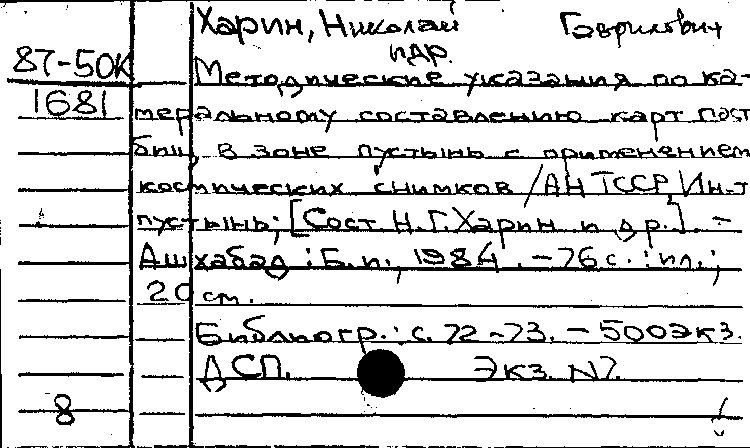 Харин, Николай Гаврилович
и др.
87-50К Методические указания по ка-
1681 меральному составлению карт паст
бищ в зоне пустынь с применением
космических снимков / АН ТССР, Ин-т
пустынь; [Сост. Н. Г. Харин и др.]. –
Ашхабад : Б. и., 1984. – 76 с. : ил.;
20 см.
Библиогр.: с. 72-73. – 500 экз.
ДСП. Экз. N7.
8